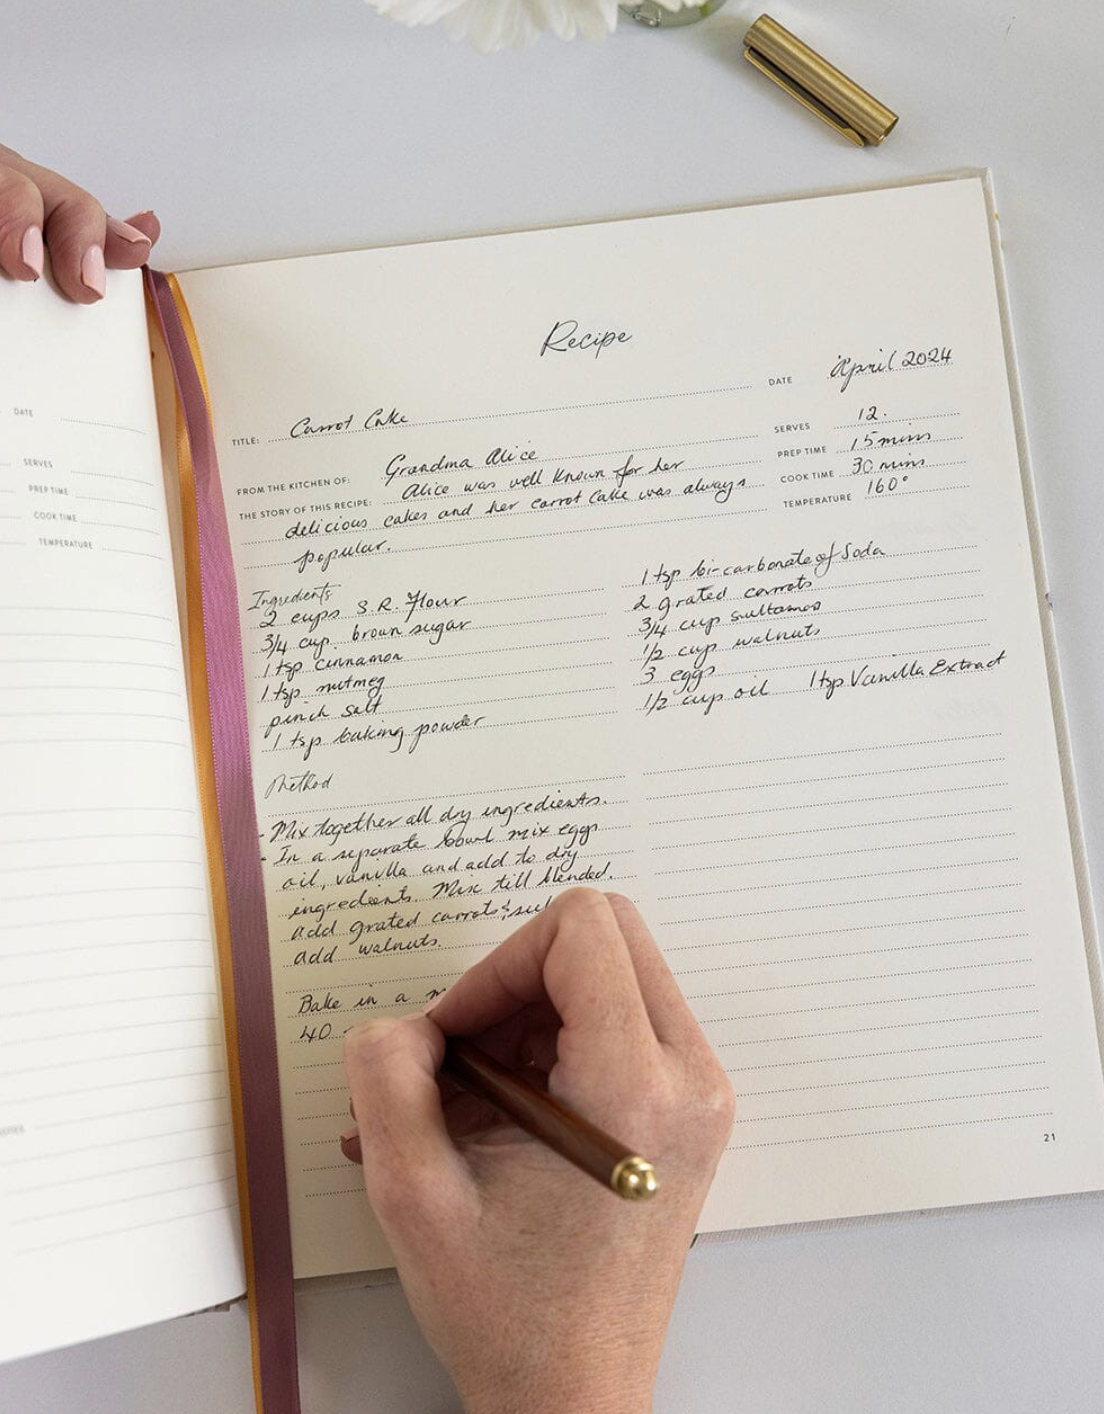 Recipe
DATE April 2024
TITLE: Carrot Cake
SERVES 12.
FROM THE KITCHEN OF: Grandma Alice
PREP TIME 15 mins
THE STORY OF THIS RECIPE: Alice was well known for her
COOK TIME 30 mins
delicious cakes and her carrot Cake was always
TEMPERATURE 160°
popular.
Ingredients
2 cups S.R. Flour
3/4 cup brown sugar
1 tsp cinnamon
1 tsp nutmeg
pinch salt
1 tsp baking powder
1 tsp bi-carbonate of Soda
2 grated carrots
3/4 cup sultanas
1/2 cup walnuts
3 eggs
1/2 cup oil 1 tsp Vanilla Extract
Method
- Mix together all dry ingredients.
- In a separate bowl mix eggs
oil, vanilla and add to dry
ingredients. Mix till blended.
Add grated carrots &
Add walnuts.
Bake in a
40
21
DATE
SERVES
PREP TIME
COOK TIME
TEMPERATURE